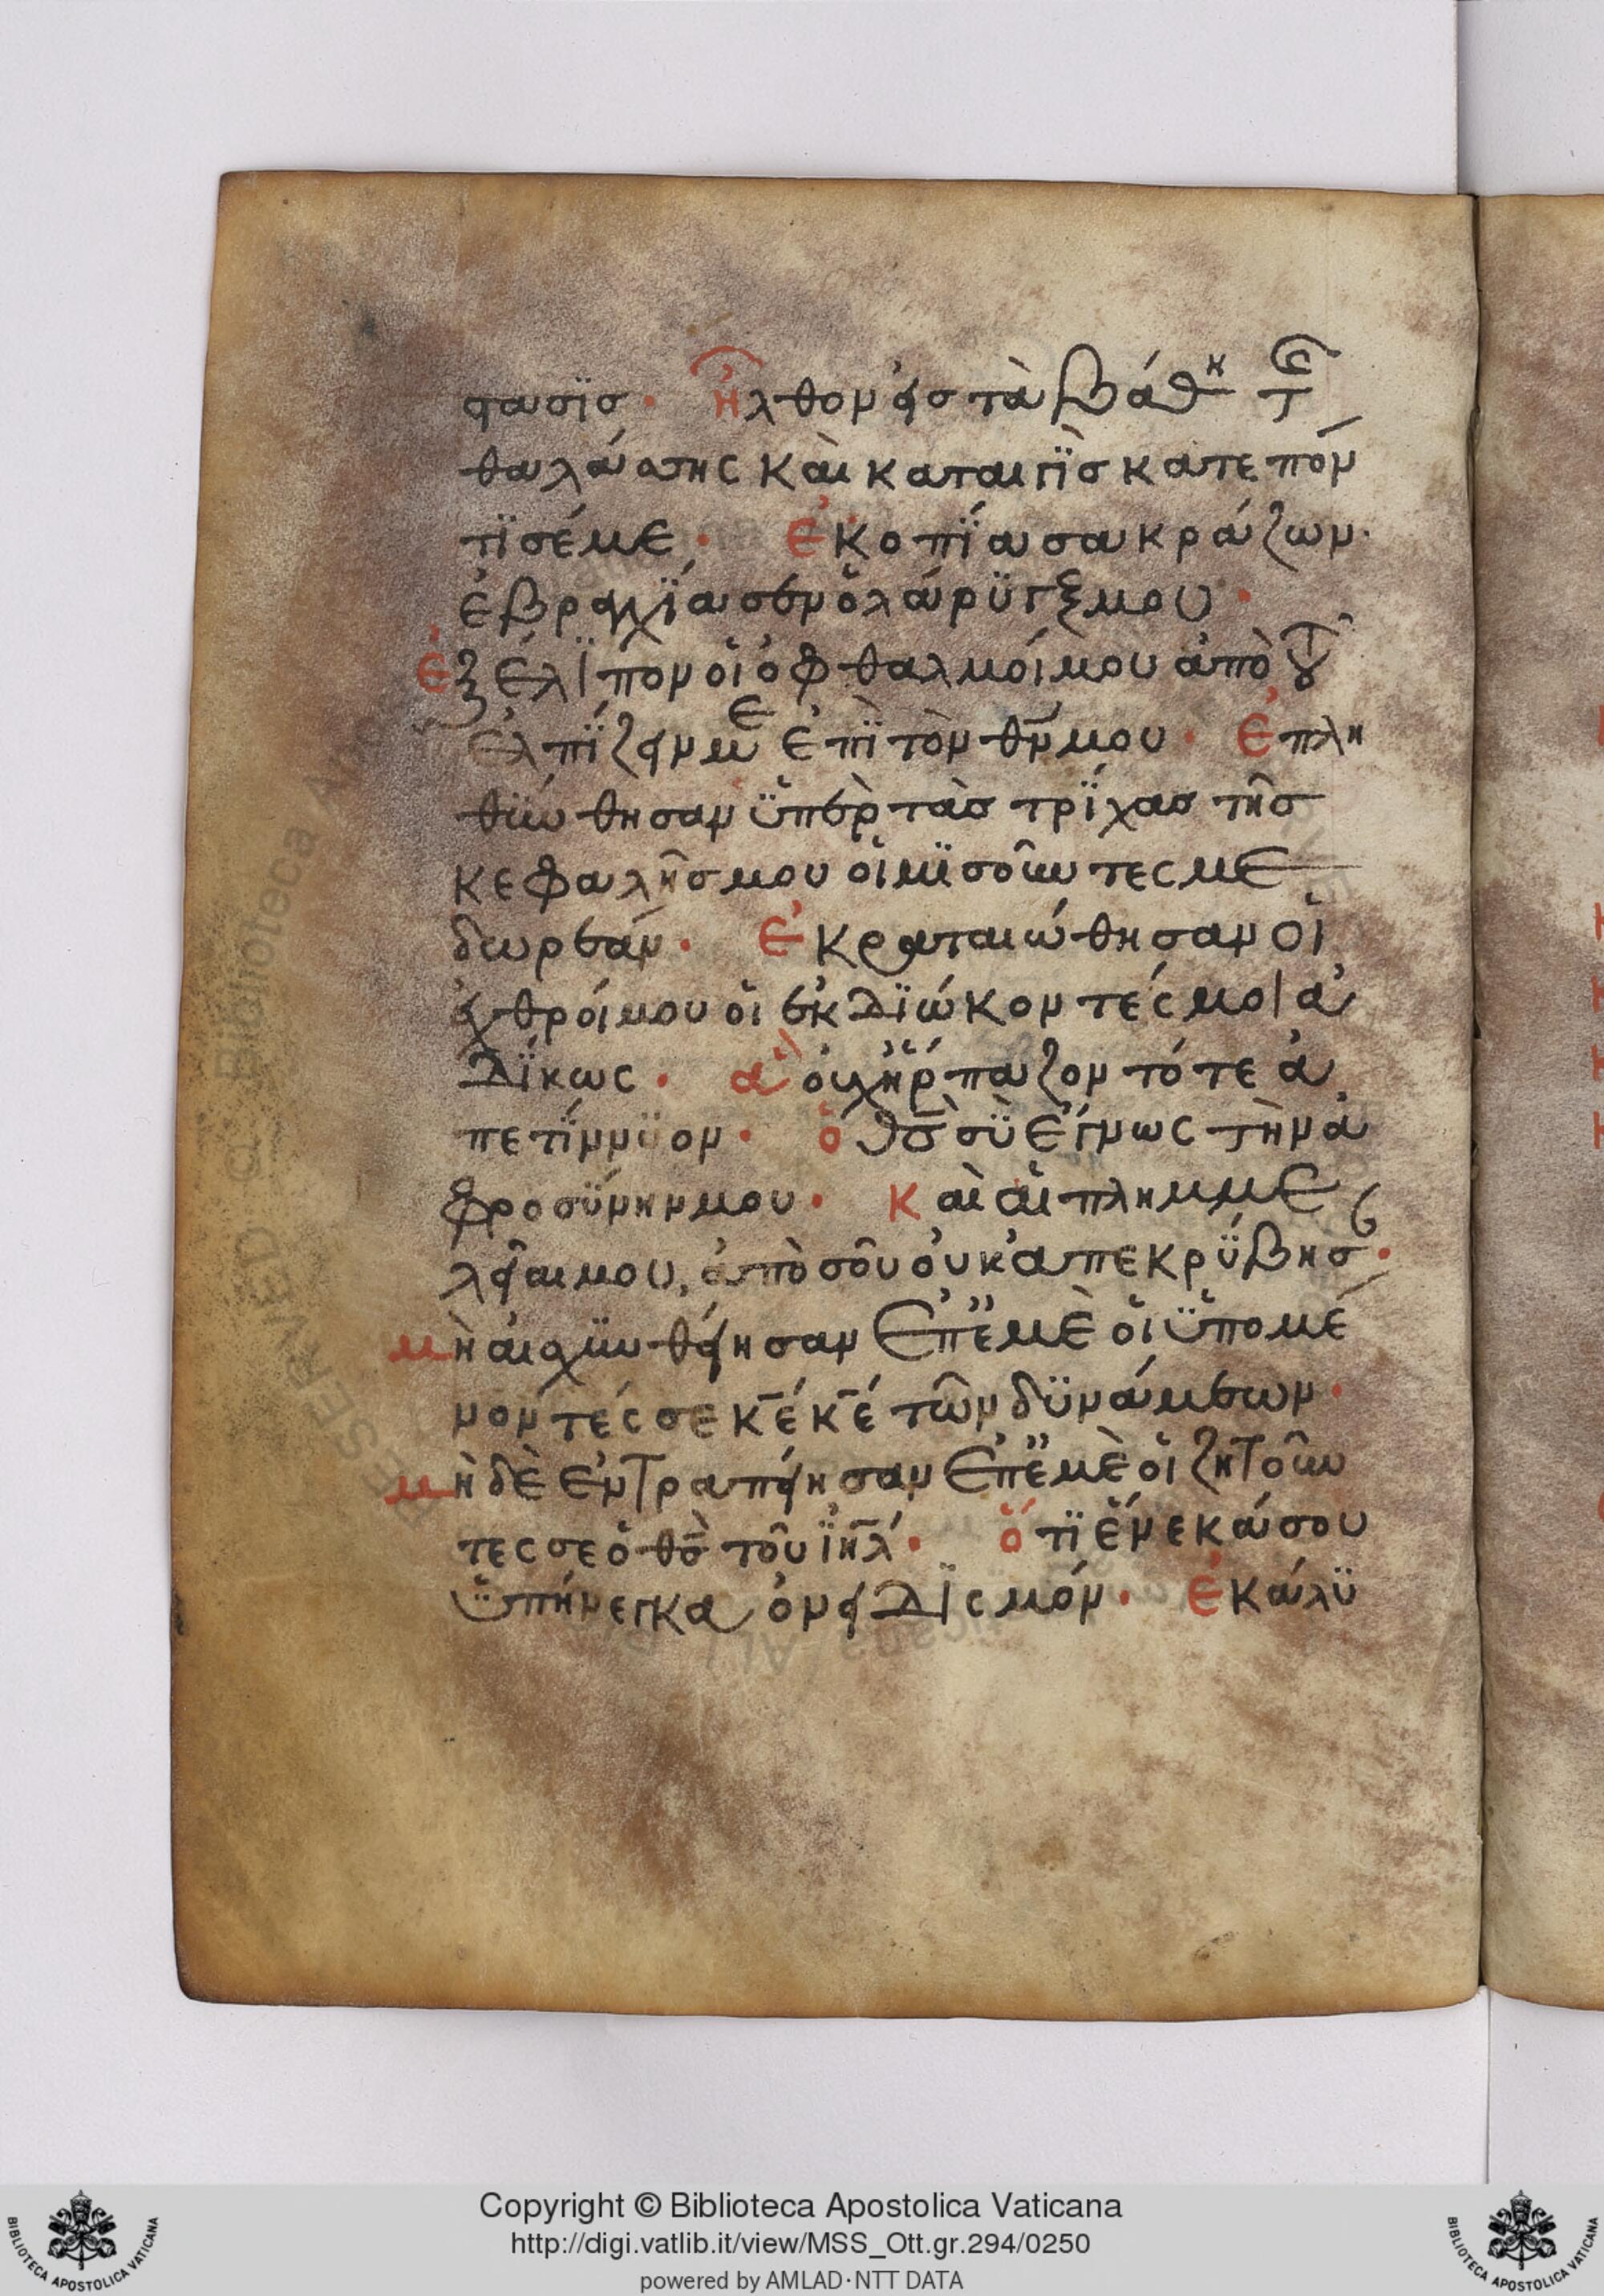 στασϊσ· ἦλθον εἰσ τὰ βάθη τ
θαλάσσης καὶ καταιγὶσ κατεπόν
τϊσέ με· ἐκοπΐασα κράζων·
ἐβραγχΐασεν ὁ λάρϋγξ μου·
ἐξέλϊπον οἱ ὀφθαλμοί μου ἀπὸ τοῦ
ἐλπΐζειν με ἐπὶ τὸν θν̄ μου· ἐπλη
θϋνθησαν ὑπὲρ τὰσ τρΐχασ τῆσ
κεφαλῆσ μου οἱ μϊσοῦντες με
δωρεάν· ἐκραταιώθησαν οἱ
ἐχθροί μου οἱ ἐκδϊώκοντές μοι ἀ
δΐκως· ἃ οὐχ ἥρπαζον τότε ἀ
πετΐννϋον· ὁ θσ̄ σὺ ἔγνως τὴν ἀ
φροσΰνην μου· καὶ αἱ πλημμέ
λειαι μου, ἀπὸ σοῦ οὐκ ἀπεκρΰβησ·
μὴ αἰσχϋνθείησαν ἐπ' ἐμὲ οἱ ὑπομέ
νοντές σε κ̄ε κ̄ε τῶν δϋνάμεων·
μὴ δὲ ἐντραπείησαν ἐπ' ἐμὲ οἱ ζητοῦν
τες σε ὁ θσ̄ τοῦ ϊηλ̄· ὅτϊ ἕνεκά σου
ὑπήνεγκα ὀνειδϊσμόν· ἐκάλϋ
Copyright © Biblioteca Apostolica Vaticana
http://digi.vatlib.it/view/MSS_Ott.gr.294/0250
powered by AMLAD·NTT DATA
BIBLIOTECA APOSTOLICA VATICANA
BIBLIOTECA APOSTOLICA VATICANA